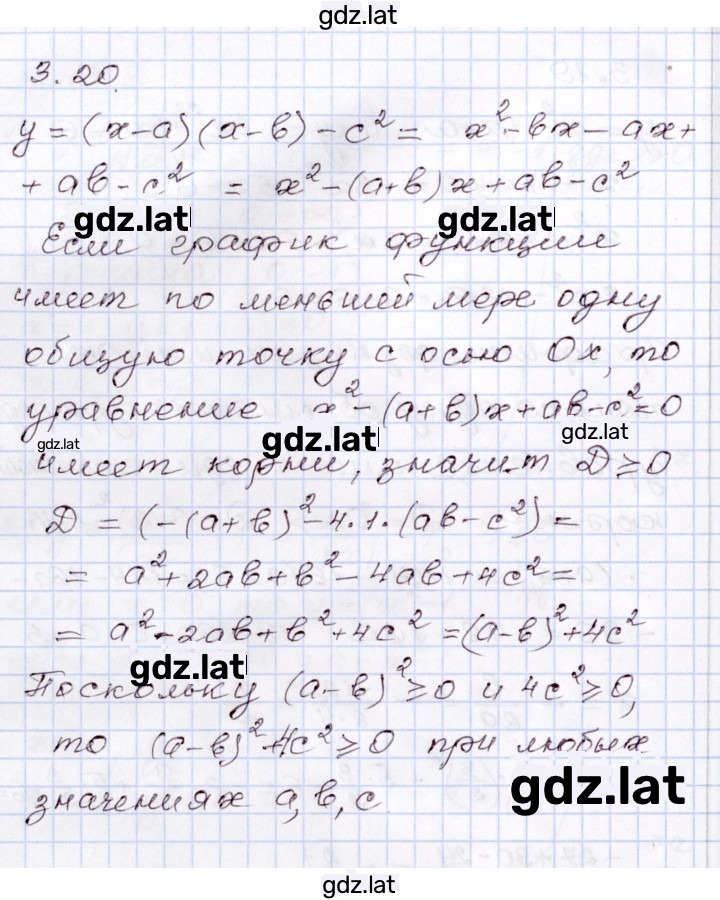 gdz.lat
3.20
y = (x-a)(x-в)-c² = x²-вx-ax+
+ aв-c² = x²-(a+в)x+aв-c²
gdz.lat gdz.lat
Если график функции
имеет по меньшей мере одну
общую точку с осью Ox, то
уравнение x²-(a+в)x+aв-c²=0
gdz.lat gdz.lat gdz.lat
имеет корни, значит D≥0
D = (-(a+в)²-4.1.(aв-c²)=
= a²+2aв+в²-4aв+4c²=
= a²-2aв+в²+4c² =(a-в)²+4c²
gdz.lat
Поскольку (a-в)²≥0 и 4c²≥0,
то (a-в)²+4c²≥0 при любых
gdz.lat
значениях a, в, c
gdz.lat